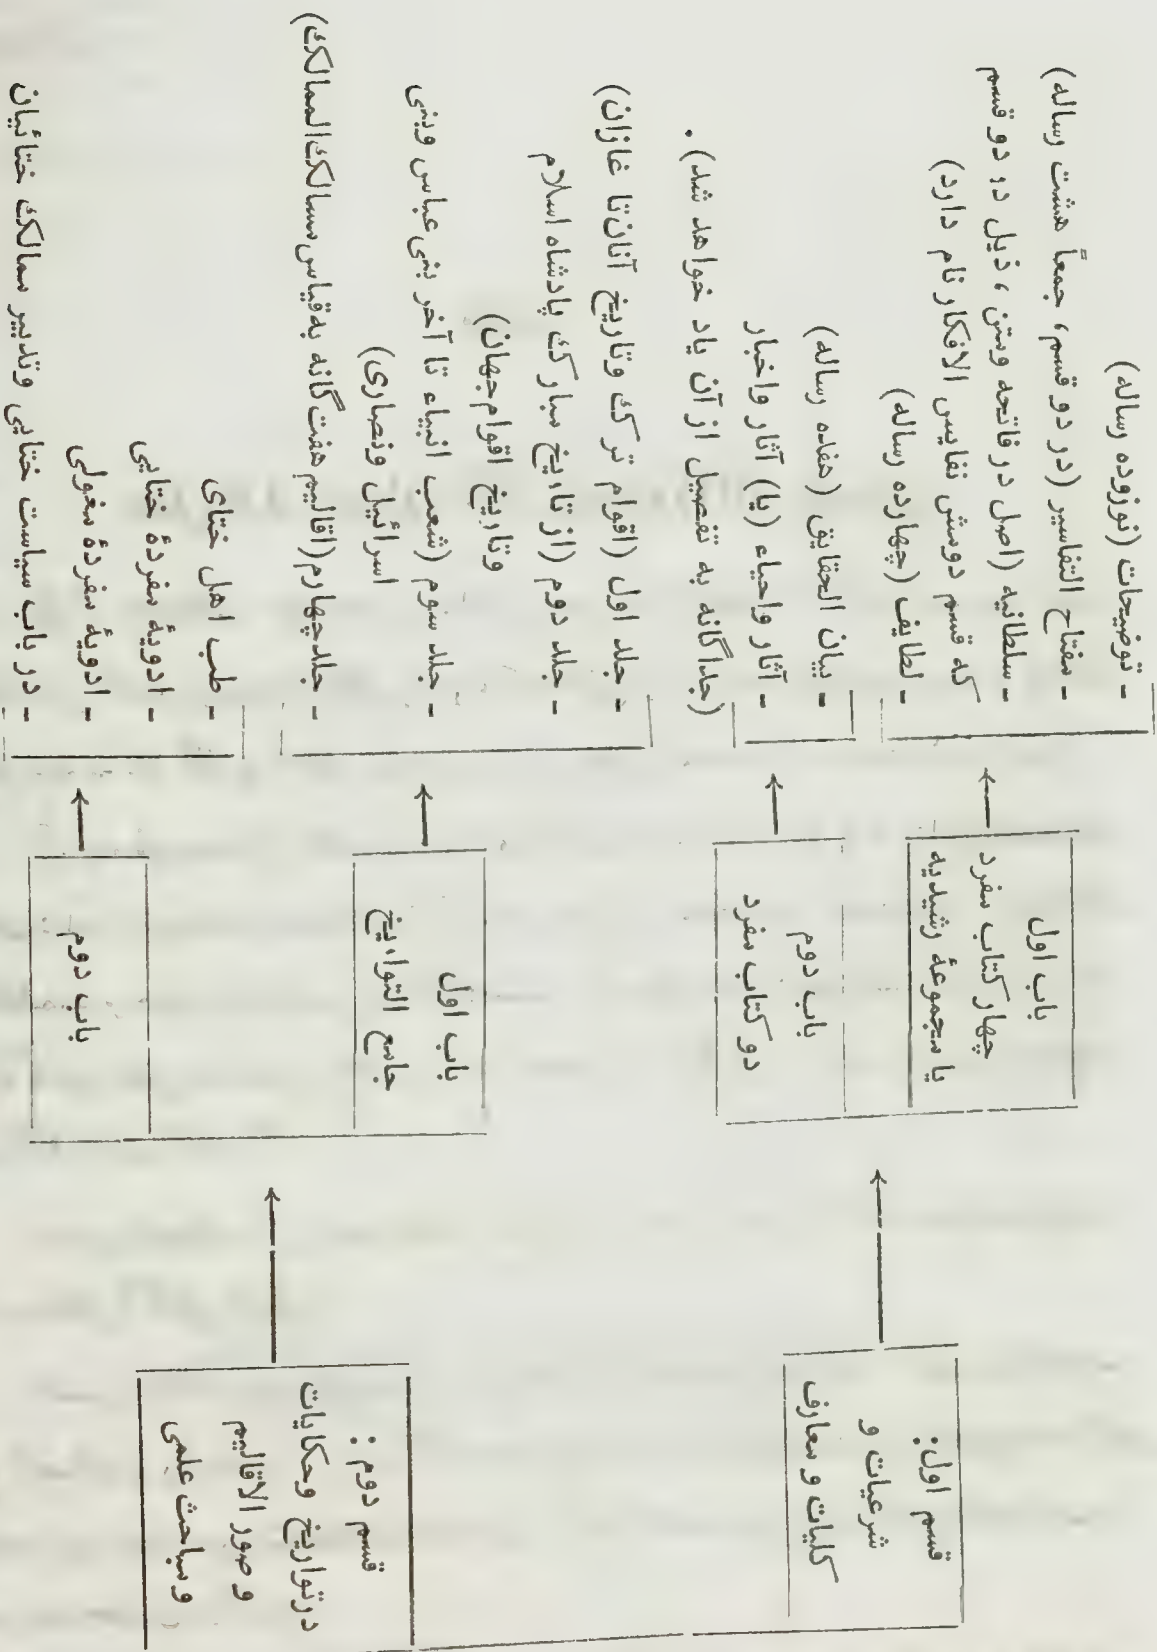 قسم اول:
شرعیات و
کلیات و معارف
باب اول
چهار کتاب مفرد
یا مجموعهٔ رشیدیه
- توضیحات (نوزوده رساله)
- مفتاح التفاسیر (در دو قسم، جمعاً هشت رساله)
- سلطانیه (اصل در فاتحه ومتن، ذیل در دو قسم
که قسم دومش نفایس الافکار نام دارد)
- لطایف (چهارده رساله)
باب دوم
دو کتاب مفرد
- بیان الحقایق (هفده رساله)
- آثار واحیاء (یا) آثار واخبار
(جداگانه به تفصیل از آن یاد خواهد شد).
قسم دوم:
درتواریخ وحکایات
و صور الاقالیم
و مباحث علمی
باب اول
جامع التواریخ
- جلد اول (اقوام ترک وتاریخ آنان تا غازان)
- جلد دوم (از تاریخ مبارک پادشاه اسلام
وتاریخ اقوام جهان)
- جلد سوم (شعب انبیاء تا آخر بنی عباس وبنی
اسرائیل ونصاری)
- جلدچهارم (اقالیم هفت گانه به قیاس مسالک الممالک)
باب دوم
- طب اهل ختای
- ادویهٔ مفردهٔ ختایی
- ادویهٔ مفردهٔ مغولی
- در باب سیاست ختایی وتدبیر ممالک ختائیان